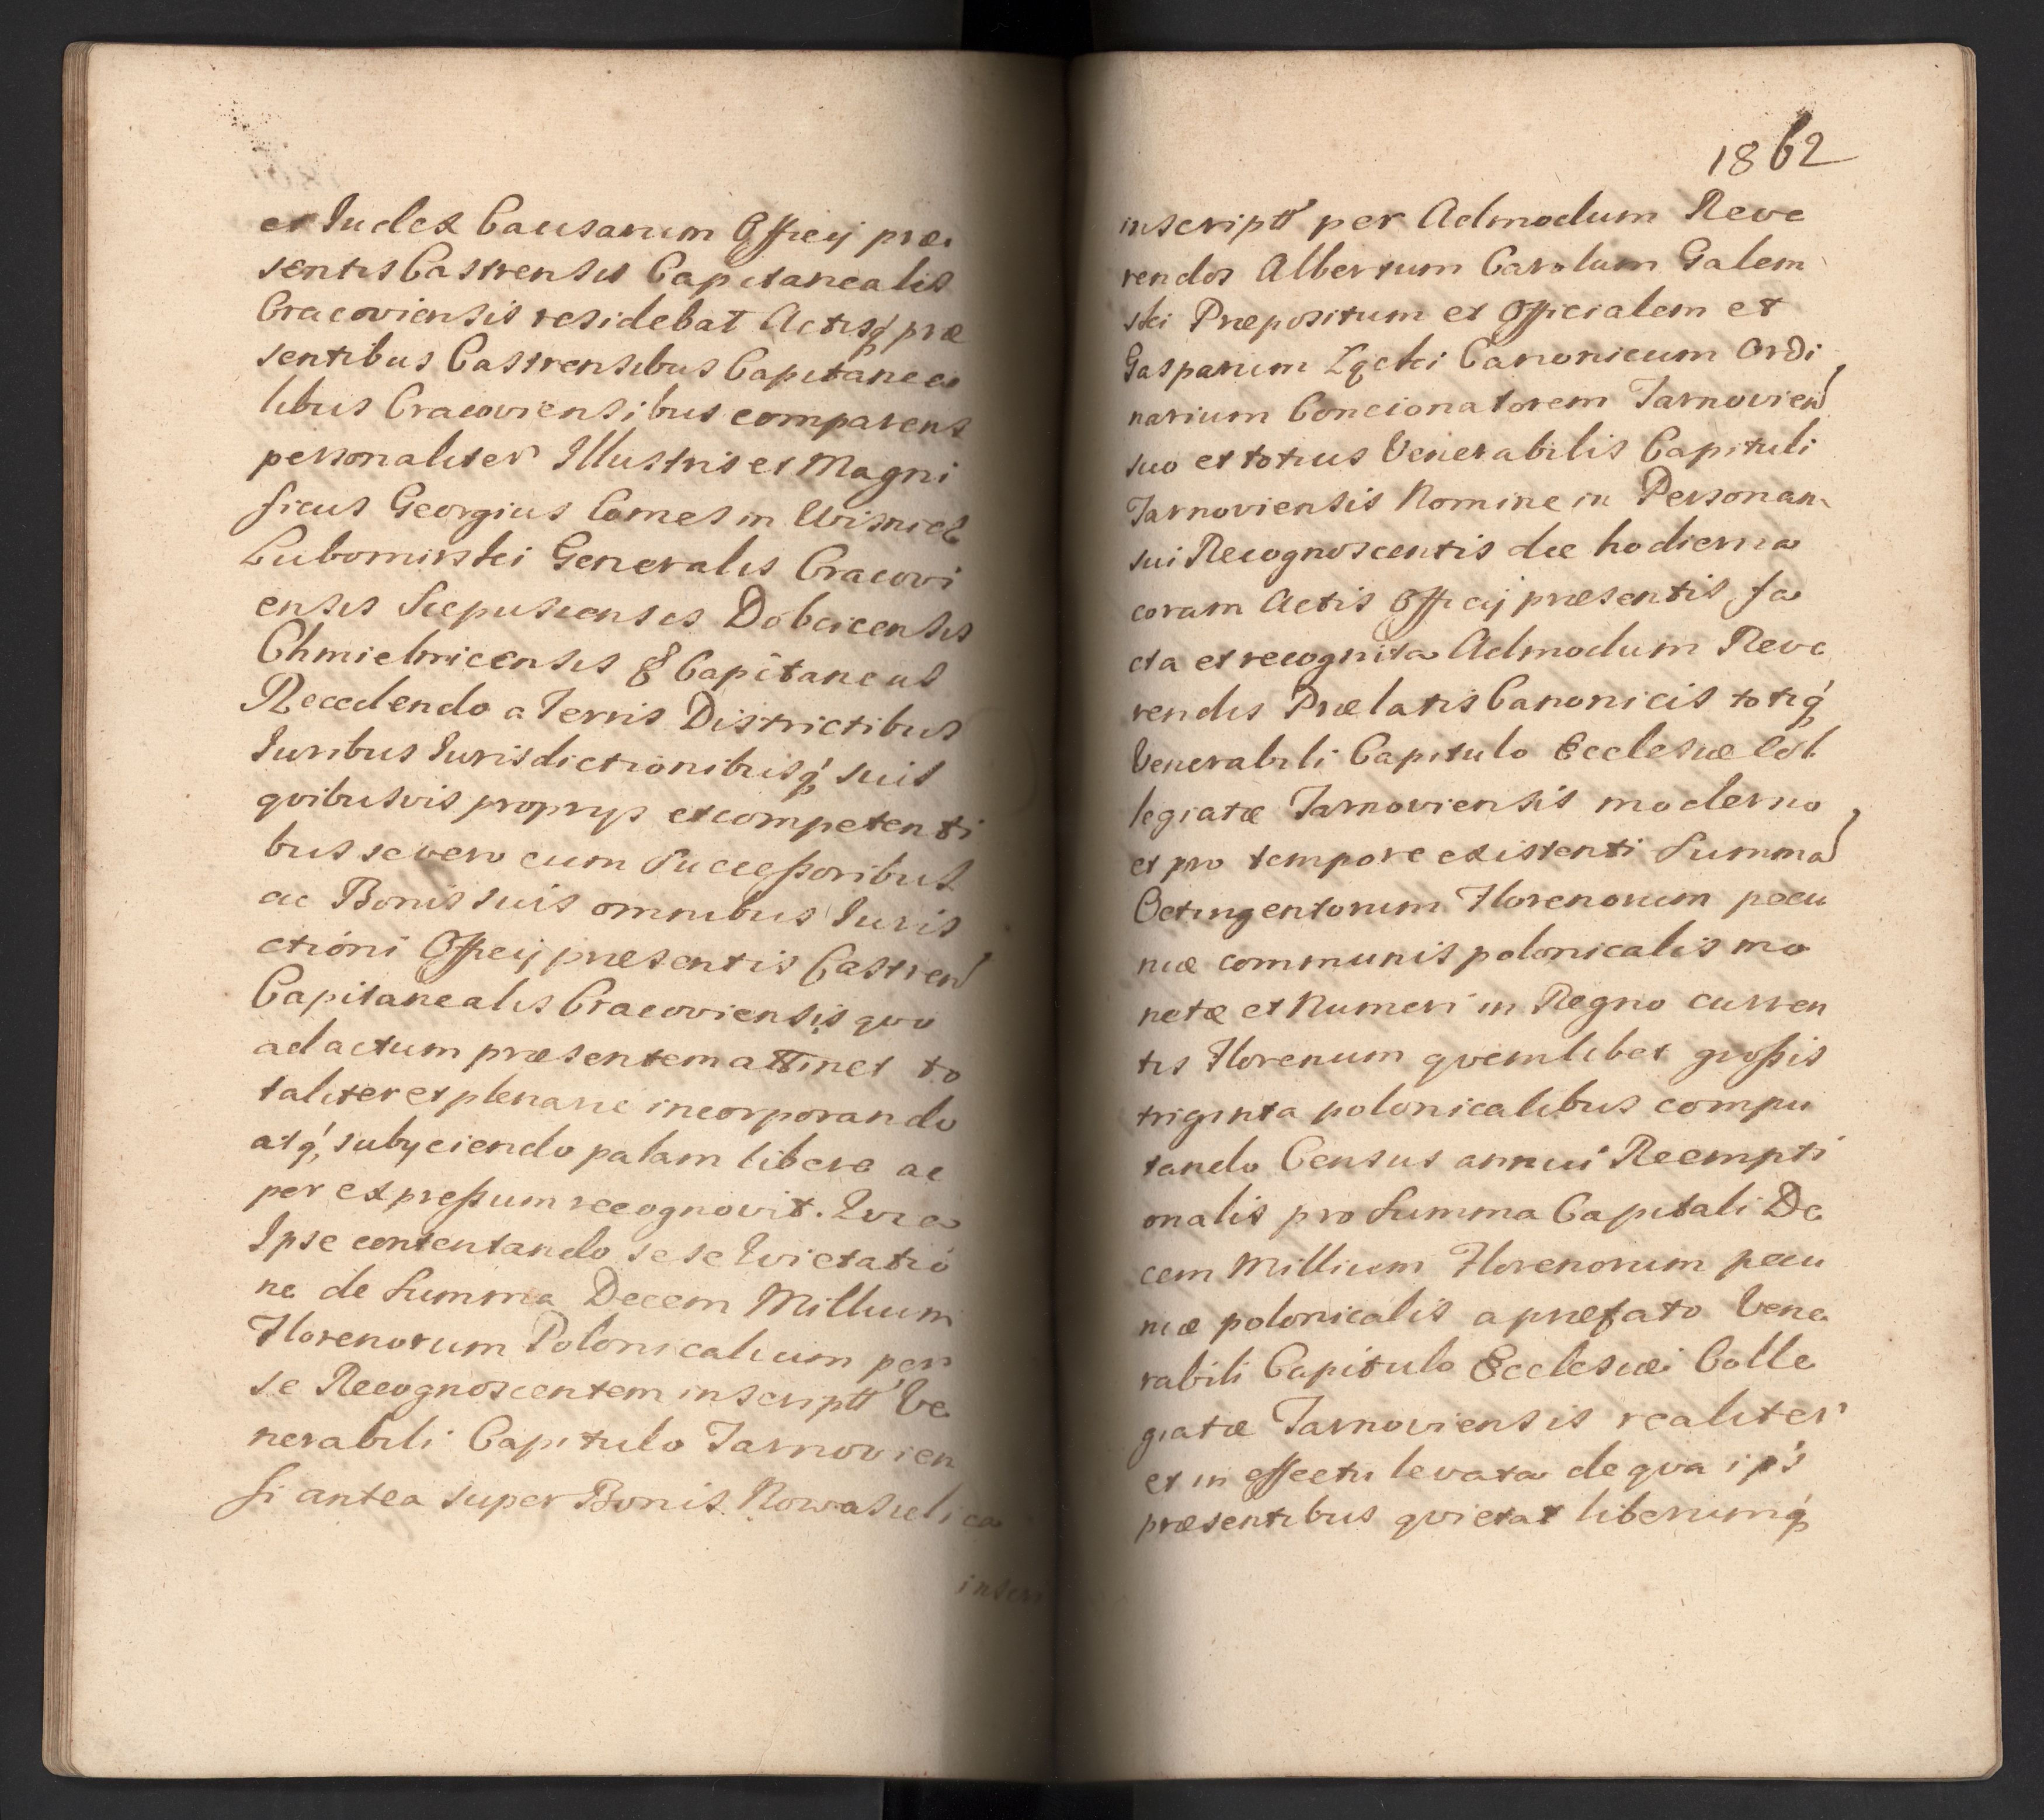 et Iudex Causarum Officij præ
sentis Castrensis Capitanealis
Cracoviensis residebat Actisq́ præ
sentibus Castrensibus Capitanea
libus Cracoviensibus comparens
personaliter Illustris et Magni
ficus Georgius Comes in Wisnicz
Lubomirski Generalis Cracovi
ensis Scepusiensis Dobcicensis
Chmielnicensis & Capitaneus
Recedendo a Terris Districtibus
Iuribus Iurisdictionibusq́ suis
qvibusvis proprys et competenti
bus se vero cum Succeßoribus
ac Bonis suis omnibus Iuris
ctióni Officij præsentis Castren
Capitanealis Cracoviensis qvo
ad actum præsentem attinet to
taliter et plenarie incorporando
atq́, subyciendo palam libere ac
per expreßum recognovit. Qvia
Ipse contentando se se Qvietatio
ne de Summa Decem Millium
Florenorum Polonicalium per
se Recognoscentem inscriptt Ve
nerabili Capitulo Tarnovien
si antea super Bonis Nowasielica
inscri
1862
inscriptt per Admodum Reve
rendos Albertum Carolum Galem
ski Præpositum et Officialem et
Gasparum Łącki Canonicum Ordi
narium Concionatorem Tarnovien
suo et totius Venerabilis Capituli
Tarnoviensis Nomine in Personam
sui Recognoscentis die hodierna
coram Actis Officij præsentis fa
cta et recognita Admodum Reve
rendis Prælatis Canonicis totiq́
Venerabili Capitulo Ecclesiæ Col
legiatæ Tarnoviensis moderno
et pro tempore existenti Summa
Octingentorum Florenorum pecu
niæ communis polonicalis mo
netæ et Numeri in Regno curren
tis Florenum qvemlibet großis
triginta polonicalibus compu
tando Census annui Reempti
onalis pro Summa Capitali De
cem Millium Florenorum pecu
niæ polonicalis a præfato Vene
rabili Capitulo Ecclesiæ Colle
giatæ Tarnoviensis realiter
et in effectu levata de qva ips
præsentibus qvietat liberumq́